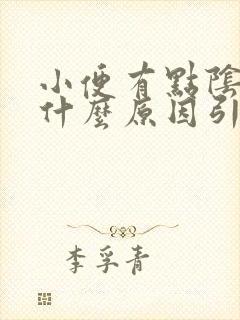 小便有點陰
什麼原因引
李孚青